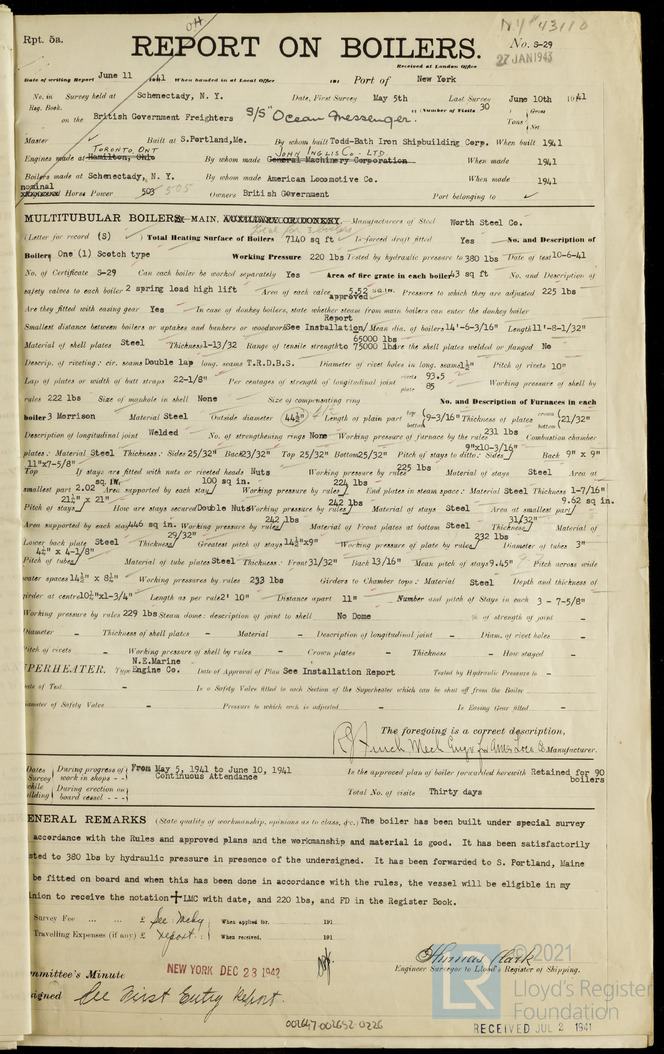 OH
N.Y. # 43110
Rpt. 5a.
REPORT ON BOILERS.
No. S-29
Received at London Office
27 JAN 1943
Date of writing Report June 11 1941 When handed in at Local Office 191 Port of New York
No. in Survey held at Schenectady, N. Y. Date, First Survey May 5th Last Survey June 10th 1941
Reg. Book. (Number of Visits 30 ) Gross
on the British Government Freighters S/S "Ocean Messenger." Tons Net
Master Built at S.Portland,Me. By whom built Todd-Bath Iron Shipbuilding Corp. When built 1941
TORONTO, ONT. JOHN INGLIS CO. LTD
Engines made at Hamilton, Ohio By whom made General Machinery Corporation When made 1941
Boilers made at Schenectady, N. Y. By whom made American Locomotive Co. When made 1941
nominal
Horse Power 503 505 Owners British Government Port belonging to
MULTITUBULAR BOILERS MAIN, AUXILIARY OR DONKEY. Manufacturers of Steel Worth Steel Co.
(Letter for record (S) Total Heating Surface of Boilers 7140 sq ft Is forced draft fitted Yes No. and Description of
Boilers One (1) Scotch type Working Pressure 220 lbs Tested by hydraulic pressure to 380 lbs Date of test 10-6-41
No. of Certificate S-29 Can each boiler be worked separately Yes Area of fire grate in each boiler 43 sq ft No. and Description of
safety valves to each boiler 2 spring load high lift Area of each valve 5.52 sq.in. Pressure to which they are adjusted 225 lbs
approved
Are they fitted with easing gear Yes In case of donkey boilers, state whether steam from main boilers can enter the donkey boiler
Report
Smallest distance between boilers or uptakes and bunkers or woodwork See Installation/ Mean dia. of boilers 14'-6-3/16" Length 11'-8-1/32"
65000 lbs
Material of shell plates Steel Thickness 1-13/32 Range of tensile strength to 75000 lbs Are the shell plates welded or flanged No
Descrip. of riveting: cir. seams Double lap long. seams T.R.D.B.S. Diameter of rivet holes in long. seams 1½" Pitch of rivets 10"
Lap of plates or width of butt straps 22-1/8" Per centages of strength of longitudinal joint rivets 93.5 plate 85 Working pressure of shell by
rules 222 lbs Size of manhole in shell None Size of compensating ring No. and Description of Furnaces in each
boiler 3 Morrison Material Steel Outside diameter (44½") Length of plain part top bottom 9-3/16" Thickness of plates crown bottom 21/32"
Description of longitudinal joint Welded No. of strengthening rings None Working pressure of furnace by the rules 231 lbs Combustion chamber
9"x10-3/16"
plates: Material Steel Thickness: Sides 25/32" Back 23/32" Top 25/32" Bottom 25/32" Pitch of stays to ditto: Sides Back 9" x 9"
11"x7-5/8"
Top If stays are fitted with nuts or riveted heads Nuts Working pressure by rules 225 lbs Material of stays Steel Area at
sq. in. 100 sq. in. 224 lbs
smallest part 2.02 Area supported by each stay Working pressure by rules End plates in steam space: Material Steel Thickness 1-7/16"
21½" x 21" 242 lbs 9.62 sq in.
Pitch of stays How are stays secured Double Nuts Working pressure by rules Material of stays Steel Area at smallest part
242 lbs 31/32"
Area supported by each stay 446 sq in. Working pressure by rules Material of Front plates at bottom Steel Thickness Material of
29/32" 232 lbs
Lower back plate Steel Thickness Greatest pitch of stays 14½"x9" Working pressure of plate by rules Diameter of tubes 3"
4¼" x 4-1/8"
Pitch of tubes Material of tube plates Steel Thickness: Front 31/32" Back 13/16" Mean pitch of stays 9.45" Pitch across wide
water spaces 14½" x 8¼" Working pressures by rules 233 lbs Girders to Chamber tops: Material Steel Depth and thickness of
girder at centre 10½"x1-3/4" Length as per rule 2' 10" Distance apart 11" Number and pitch of Stays in each 3 - 7-5/8"
Working pressure by rules 229 lbs Steam dome: description of joint to shell No Dome % of strength of joint -
Diameter - Thickness of shell plates - Material - Description of longitudinal joint - Diam. of rivet holes -
Pitch of rivets - Working pressure of shell by rules - Crown plates - Thickness - How stayed -
N.E.Marine
UPERHEATER. Type Engine Co. Date of Approval of Plan See Installation Report Tested by Hydraulic Pressure to -
Date of Test - Is a Safety Valve fitted to each Section of the Superheater which can be shut off from the Boiler -
Diameter of Safety Valve - Pressure to which each is adjusted - Is Easing Gear fitted -
The foregoing is a correct description,
Manufacturer.
Dates of Survey while building During progress of work in shops - - From May 5, 1941 to June 10, 1941 Is the approved plan of boiler forwarded herewith Retained for 90 boilers
Continuous Attendance
During erection on board vessel - - - Total No. of visits Thirty days
ENERAL REMARKS (State quality of workmanship, opinions as to class, &c.) The boiler has been built under special survey
accordance with the Rules and approved plans and the workmanship and material is good. It has been satisfactorily
sted to 380 lbs by hydraulic pressure in presence of the undersigned. It has been forwarded to S. Portland, Maine
be fitted on board and when this has been done in accordance with the rules, the vessel will be eligible in my
nion to receive the notation +LMC with date, and 220 lbs, and FD in the Register Book.
Survey Fee ... ... £ See Mchy When applied for. 191
Travelling Expenses (if any) £ report. When received. 191
Thomas Clark
Engineer Surveyor to Lloyd's Register of Shipping.
mmittee's Minute NEW YORK DEC 23 1942
signed See First Entry Report.
© 2021
LR
Lloyd's Register
Foundation
RECEIVED JUL 2 1941
002647-002652-0226